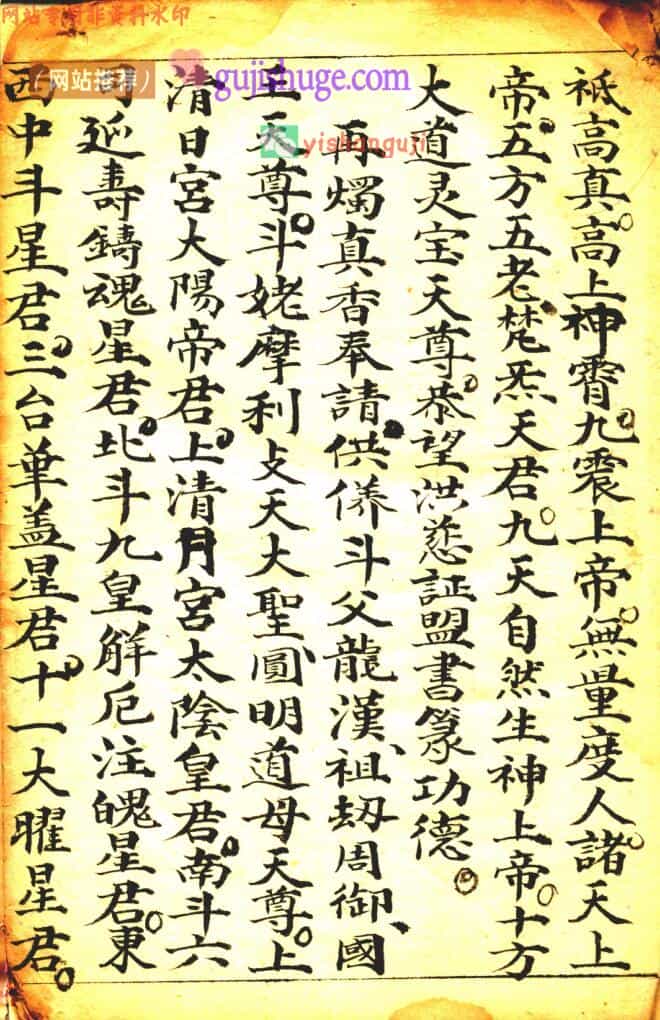 祇高真。高上神霄九震上帝。無量度人諸天上
帝。五方五老、梵炁天君。九天自然生神上帝。十方
大道灵宝天尊。恭望洪慈証盟書篆功德。
再燭真香奉請。供侎斗父龍漢、祖劫周御、國
王天尊。斗姥摩利攴天大聖、圓明道母天尊。上
清日宮大陽帝君。上清月宮太陰皇君。南斗六
司延壽鑄魂星君。北斗九皇解厄注魄星君。東
西中斗星君。三台華盖星君。十一大曜星君。
网站专用非资料水印
（网站推荐）
gujishuge.com
yishanguji